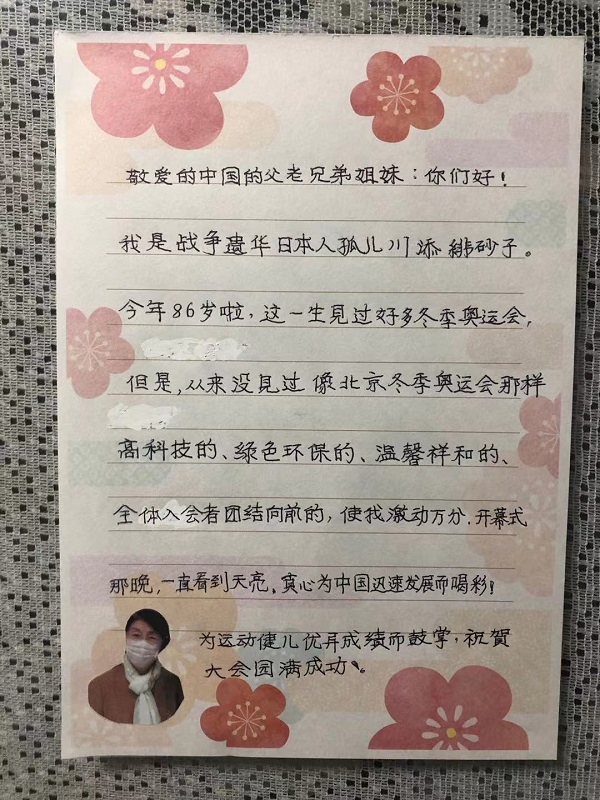 敬爱的中国的父老兄弟姐妹：你们好！
我是战争遗华日本人孤儿川添緋砂子。
今年86岁啦，这一生见过好多冬季奥运会，
但是，从来没见过像北京冬季奥运会那样
高科技的、绿色环保的、温馨祥和的、
全体入会者团结向前的，使我激动万分.开幕式
那晚，一直看到天亮。真心为中国迅速发展而喝彩！
为运动健儿优异成绩而鼓掌，祝賀
大会园满成功。